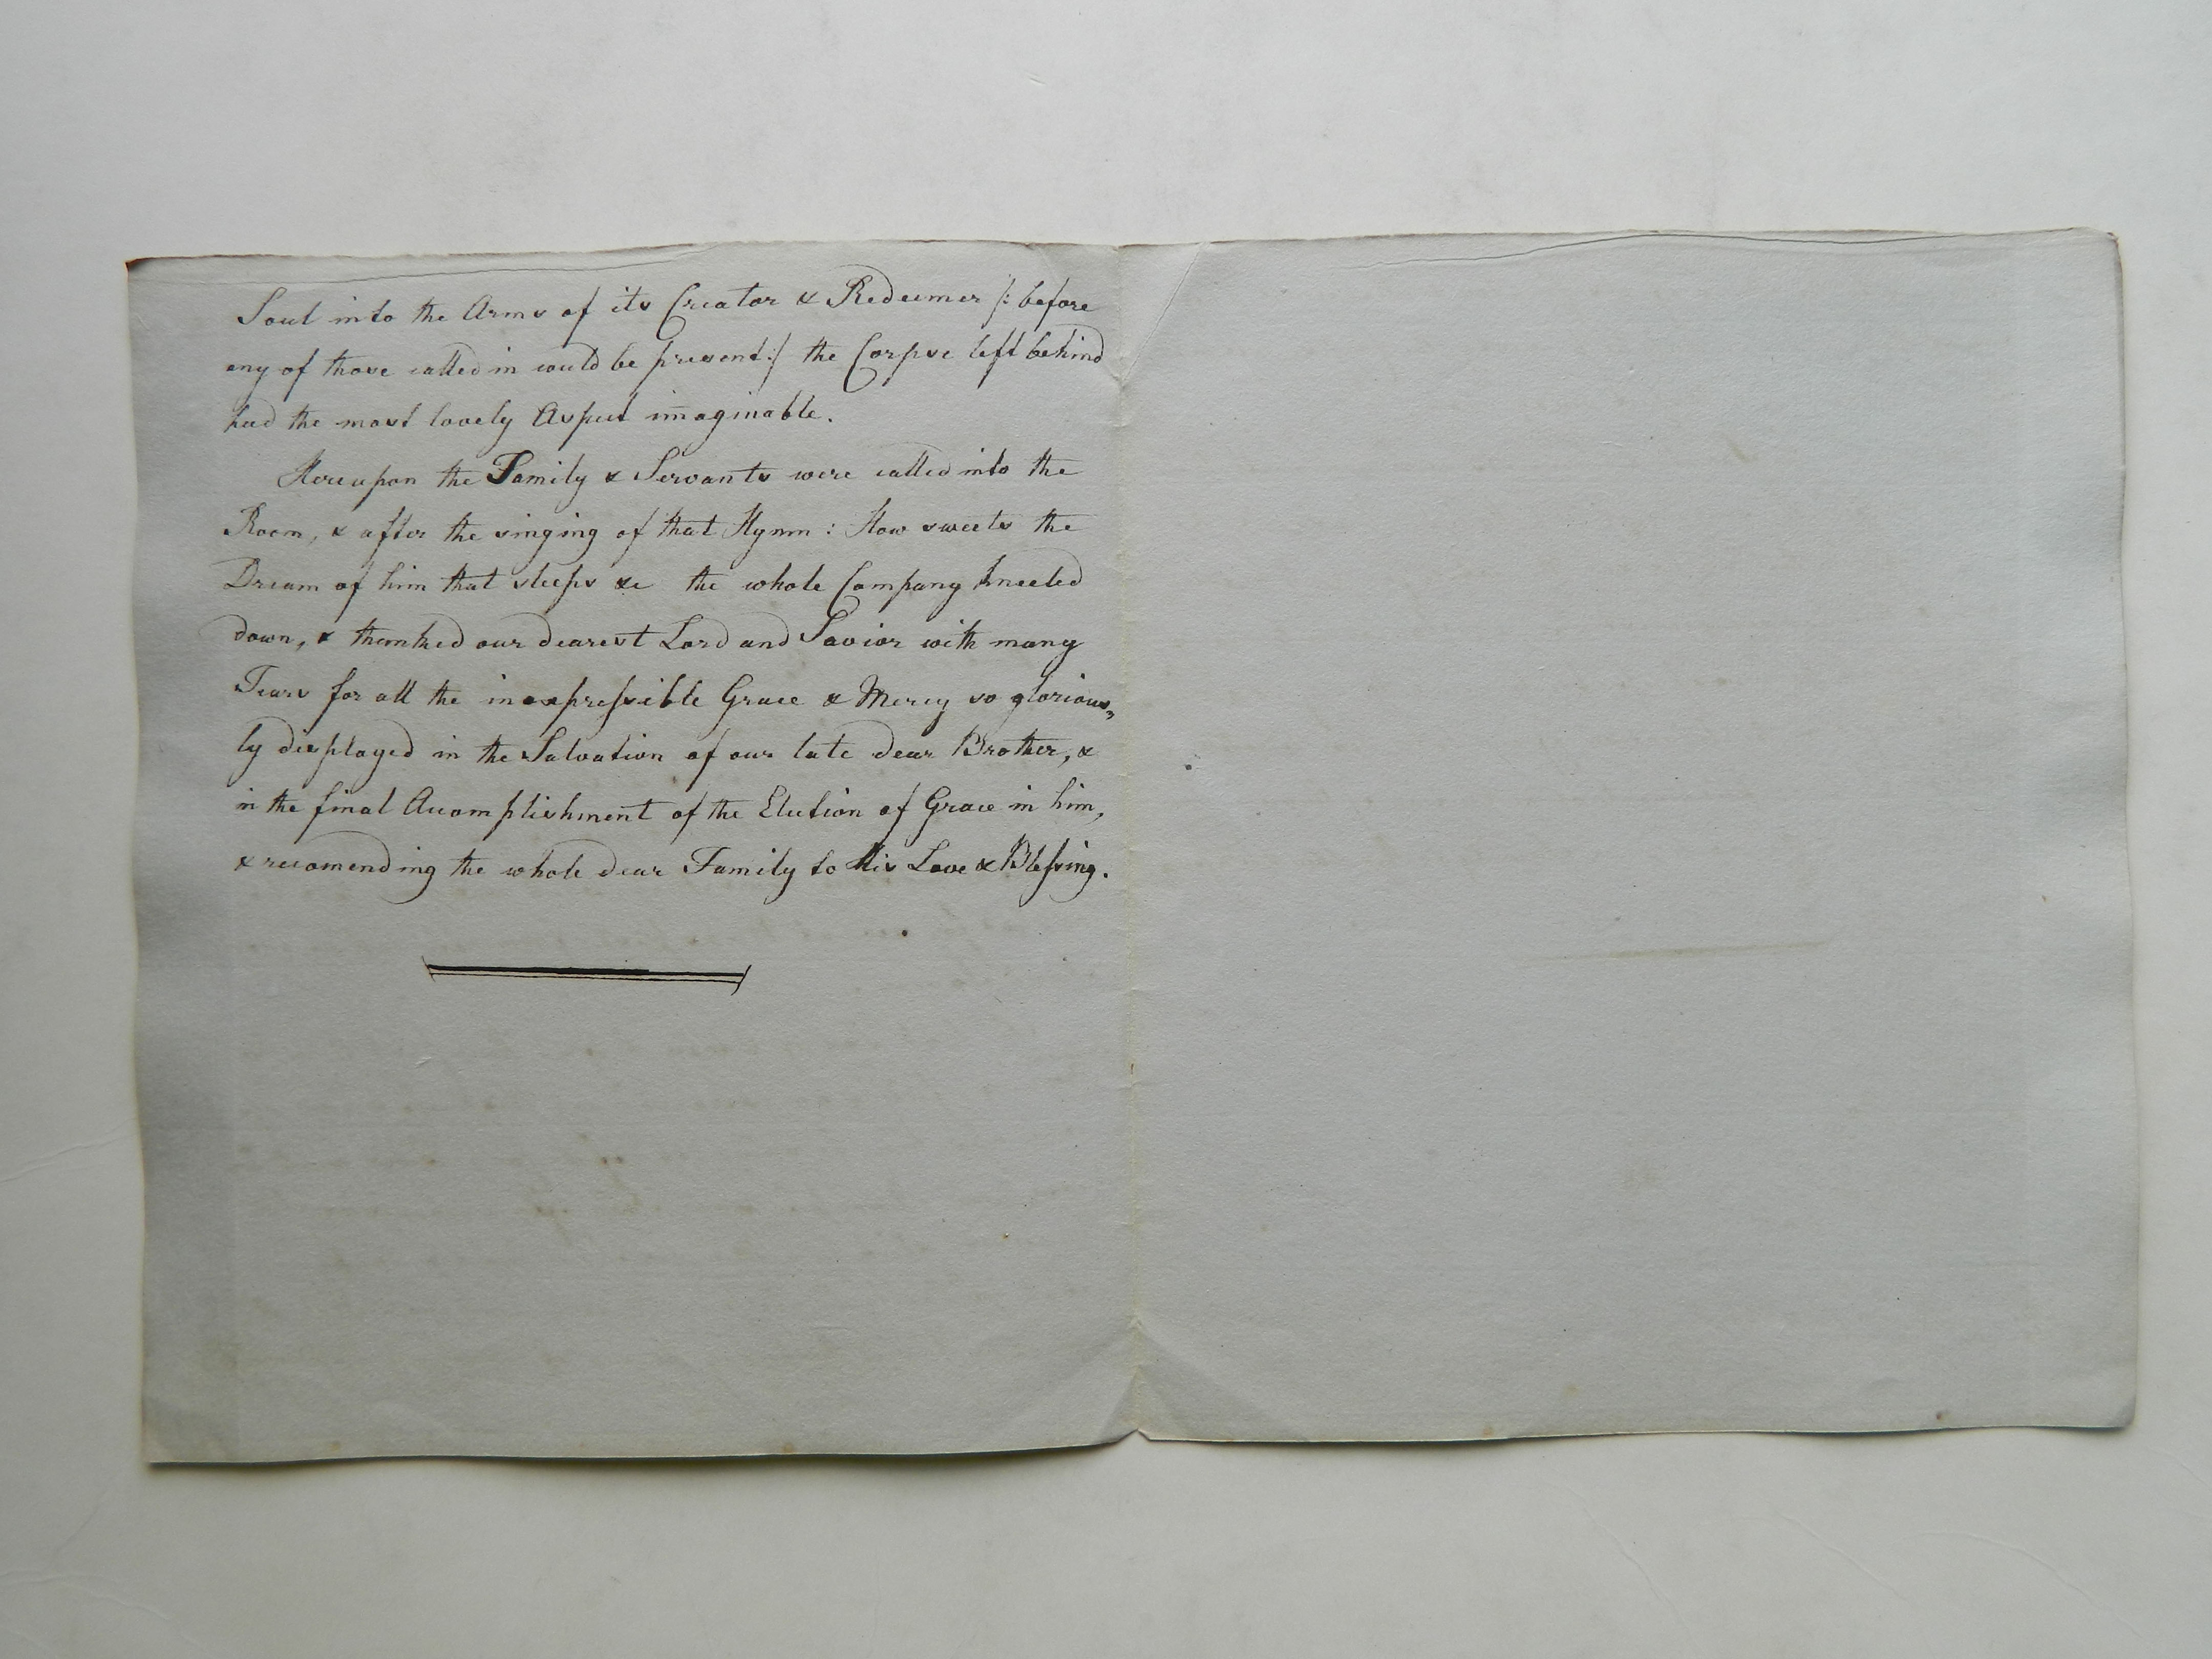 Soul into the Arms of its Creator & Redeemer /: before
any of those called in could be present :/ the Corpse left behind
had the most lovely Aspect im̄aginable.
Hereupon the Family & Servants were called into the
Room, & after the singing of that Hymn: How sweets the
Dream of him that sleeps &c the whole Company kneeled
down, & thanked our dearest Lord and Savior with many
Tears for all the inexpressible Grace & Mercy so glorious„
ly displayed in the Salvation of our late dear Brother, &
in the final Accomplishment of the Election of Grace in him,
& recomending the whole dear Family to His Love & Blessing.